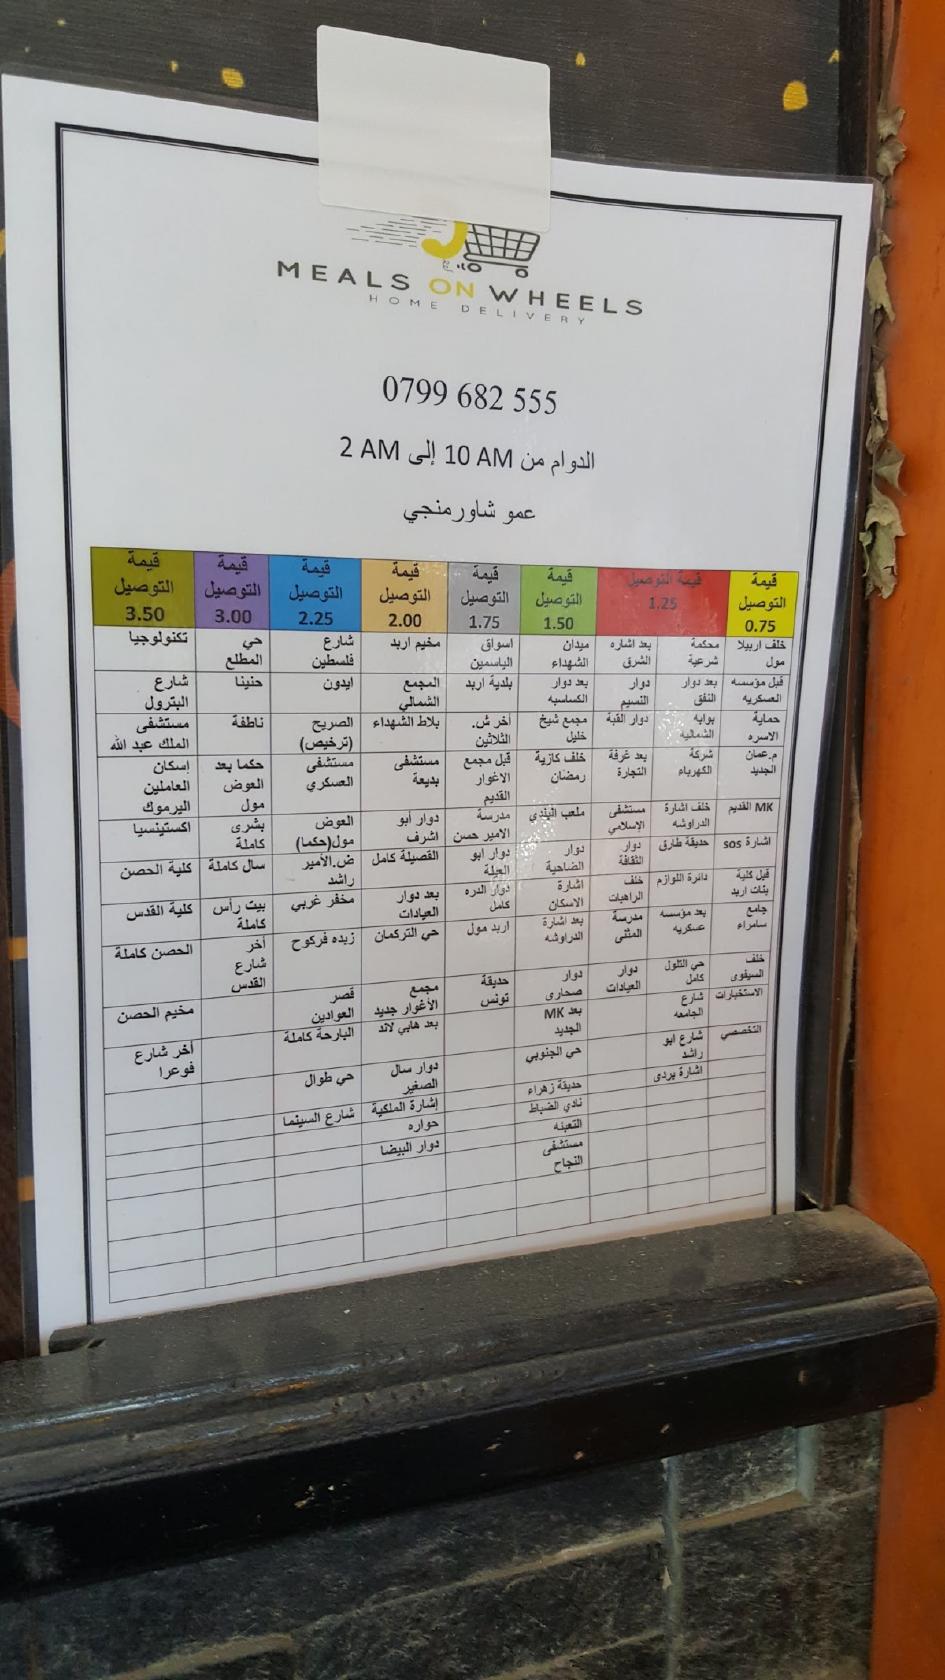 MEALS ON WHEELS
HOME DELIVERY
0799 682 555
الدوام من 10 AM إلى 2 AM
عمو شاورمنجي
قيمة التوصيل 0.75
خلف اربيلا مول
قبل مؤسسه العسكريه
حماية الاسره
م.عمان الجديد
MK القديم
اشارة sos
قبل كلية بنات اربد
جامع سامراء
خلف السيفوي
الاستخبارات
التخصصي
قيمة التوصيل 1.25
محكمة شرعية
بعد دوار النفق
بوابه الشماليه
شركة الكهرباء
خلف اشارة الدراوشه
حديقة طارق
دائرة اللوازم
بعد مؤسسه عسكريه
حي التلول كامل
شارع الجامعه
شارع ابو راشد
اشارة بردى
بعد اشاره الشرق
دوار النسيم
دوار القبة
بعد غرفة التجارة
مستشفى الإسلامي
دوار الثقافة
خلف الراهبات
مدرسة المثنى
دوار العيادات
قيمة التوصيل 1.50
ميدان الشهداء
بعد دوار الكساسبه
مجمع شيخ خليل
خلف كازية رمضان
ملعب البلدي
دوار الضاحية
اشارة الاسكان
بعد اشارة الدراوشه
دوار صحارى
بعد MK الجديد
حي الجنوبي
حديقة زهراء
نادي الضباط
التعبئه
مستشفى النجاح
قيمة التوصيل 1.75
اسواق الياسمين
بلدية اربد
أخر ش. الثلاثين
قبل مجمع الاغوار القديم
مدرسة الامير حسن
دوار ابو العبلة
دوار الدره كامل
اربد مول
حديقة تونس
قيمة التوصيل 2.00
مخيم اربد
المجمع الشمالي
بلاط الشهداء
مستشفى بديعة
دوار أبو اشرف
الفصيلة كامل
بعد دوار العيادات
حي التركمان
مجمع الأغوار جديد
بعد هابي لاند
دوار سال الصغير
إشارة الملكية
حواره
دوار البيضا
قيمة التوصيل 2.25
شارع فلسطين
ايدون
الصريح (ترخيص)
مستشفى العسكري
العوض مول(حكما)
ض.الأمير راشد
مخفر غربي
زبده فركوح
قصر العوادين
البارحة كاملة
حي طوال
شارع السينما
قيمة التوصيل 3.00
حي المطلع
حنينا
ناطفة
حكما بعد العوض مول
بشرى كاملة
سال كاملة
بيت رأس كاملة
أخر شارع القدس
قيمة التوصيل 3.50
تكنولوجيا
شارع البترول
مستشفى الملك عبد الله
إسكان العاملين اليرموك
اكستينسيا
كلية الحصن
كلية القدس
الحصن كاملة
مخيم الحصن
أخر شارع فوعرا